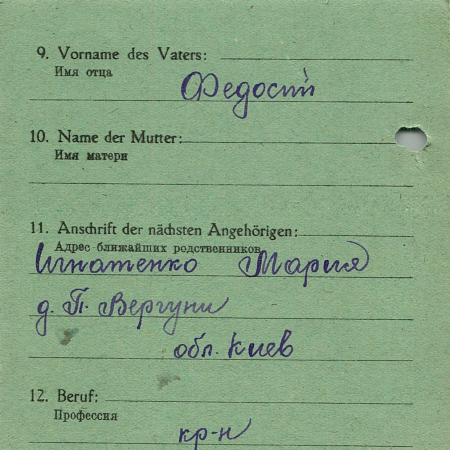 9. Vorname des Vaters:
Имя отца
Федосий
10. Name der Mutter:
Имя матери
11. Anschrift der nächsten Angehörigen:
Адрес ближайших родственников
Игнатенко Мария
д. П. Вергуни
обл. Киев
12. Beruf:
Профессия
кр-н